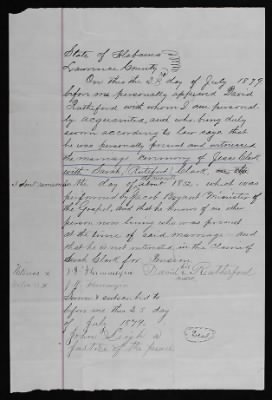 State of Alabama
Lawrence County
On this the 28 day of July 1879
before me personally appeared David
Rutherford with whom I am personal
ly acquainted, and who being duly
sworn according to law says that
he was personally present and witnessed
the marriage ceremony of Jesse Clark
with Sarah Clark,
the day of about 1852. which was
performed by Jacob Bryant Minister of
the Gospel, and that he knows of no other
person now living who was present
at the time of said marriage and
that he is not interested, in the claim of
Sarah Clark for Pension
David his Rutherford
mark
Sworn & subscribed to
before me this 28 day
of July 1879.
John Leigh a
justice of the peace
Seal